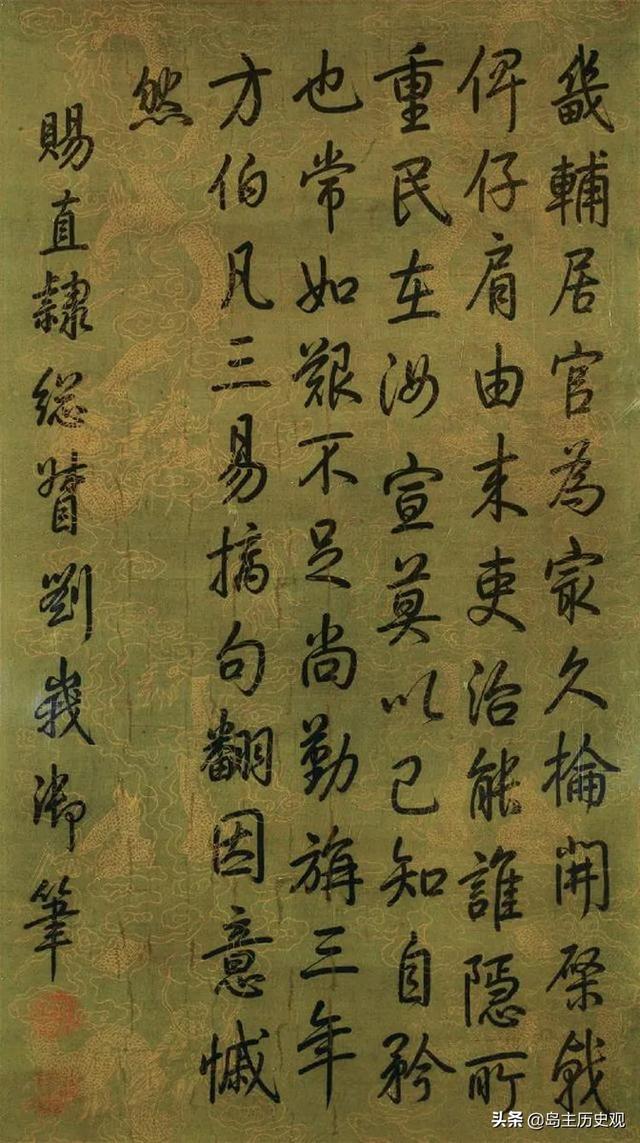 畿輔居官為㝡久掄開棨戟
俾仔肩由来吏治能誰隱所
重民在汝宣莫以已知自矜
也常如艱不足尚勤旃三年
方伯凡三易摛句翻因意慽
然
賜直隸総督劉峩御筆
头条 @岛主历史观